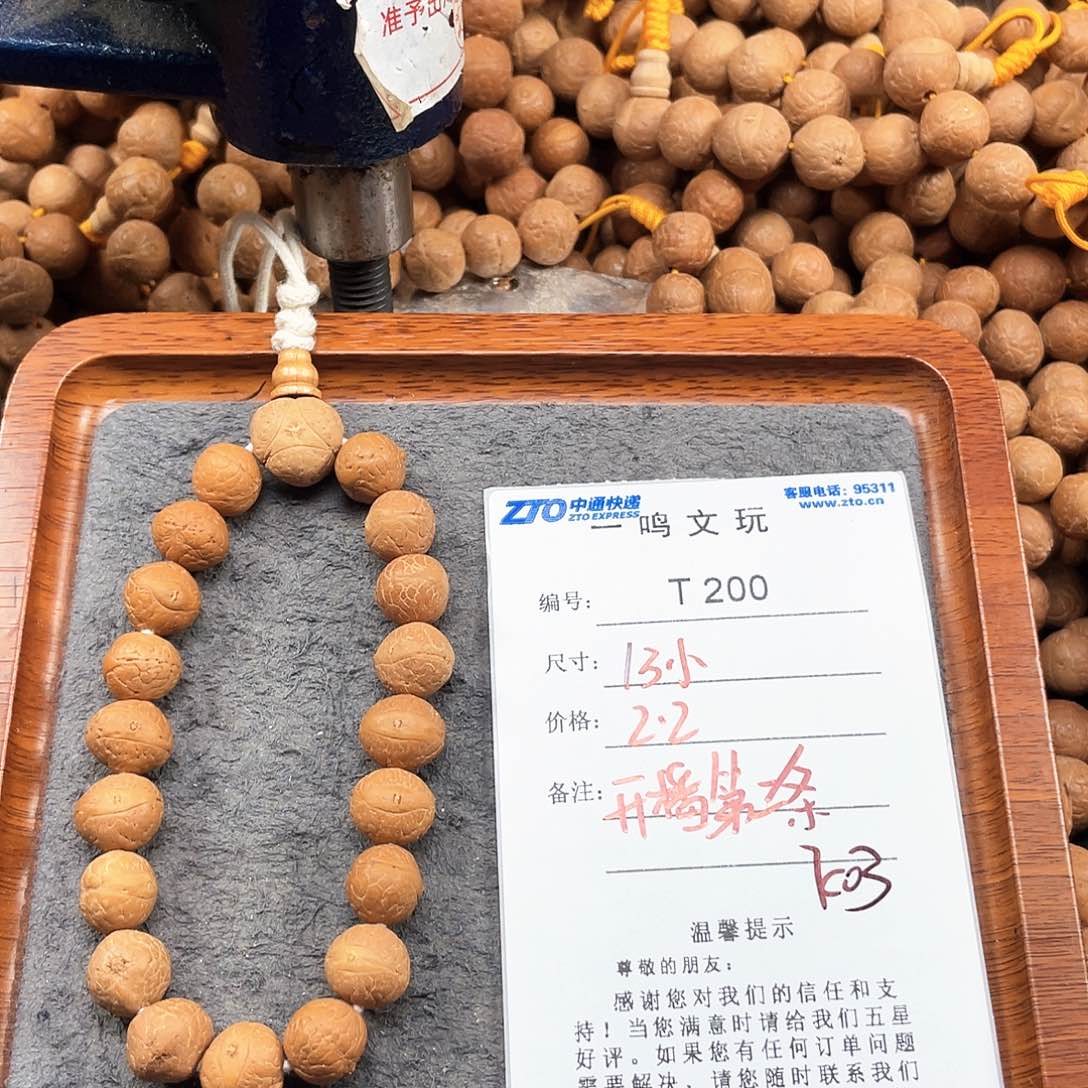 准予出
ZTO 中通快递
ZTO EXPRESS
客服电话：95311
www.zto.cn
一鸣文玩
编号： T200
尺寸： 13小
价格： 2.2
备注： 开播第一条
k03
温馨提示
尊敬的朋友：
感谢您对我们的信任和支
持！当您满意时请给我们五星
好评。如果您有任何订单问题
需要解决，请您随时联系我们